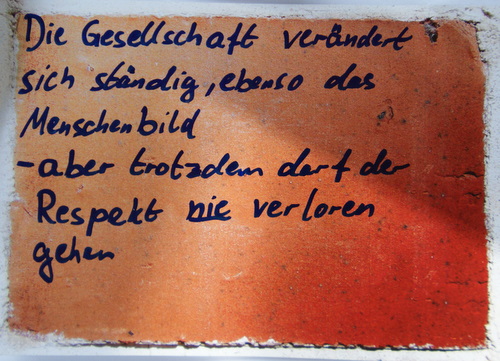 Die Gesellschaft verändert
sich ständig, ebenso das
Menschenbild
- aber trotzdem darf der
Respekt nie verloren
gehen